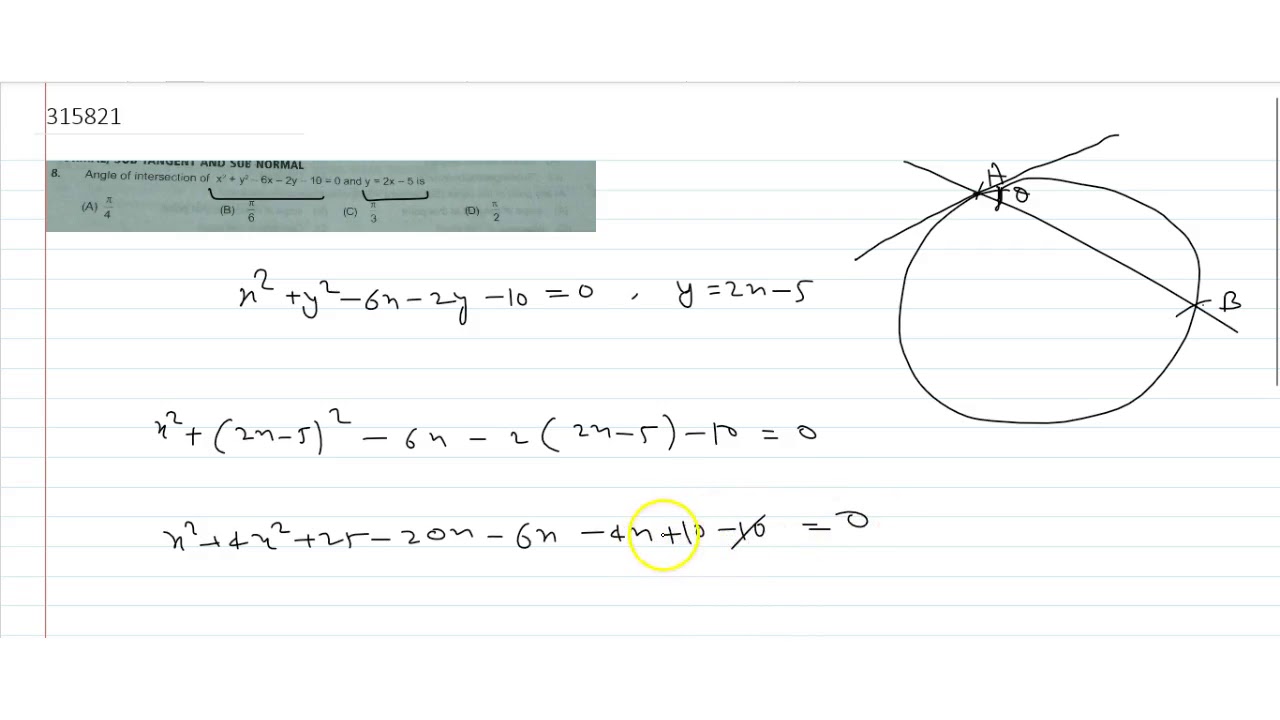 315821
SUB TANGENT AND SUB NORMAL
8. Angle of intersection of x² + y² − 6x − 2y − 10 = 0 and y = 2x − 5 is
(A) π/4 (B) π/6 (C) π/3 (D) π/2
A
θ
B
x² + y² − 6x − 2y − 10 = 0 , y = 2x − 5
x² + (2x − 5)² − 6x − 2 (2x − 5) − 10 = 0
x² + 4x² + 25 − 20x − 6x − 4x + 10 − 10 = 0